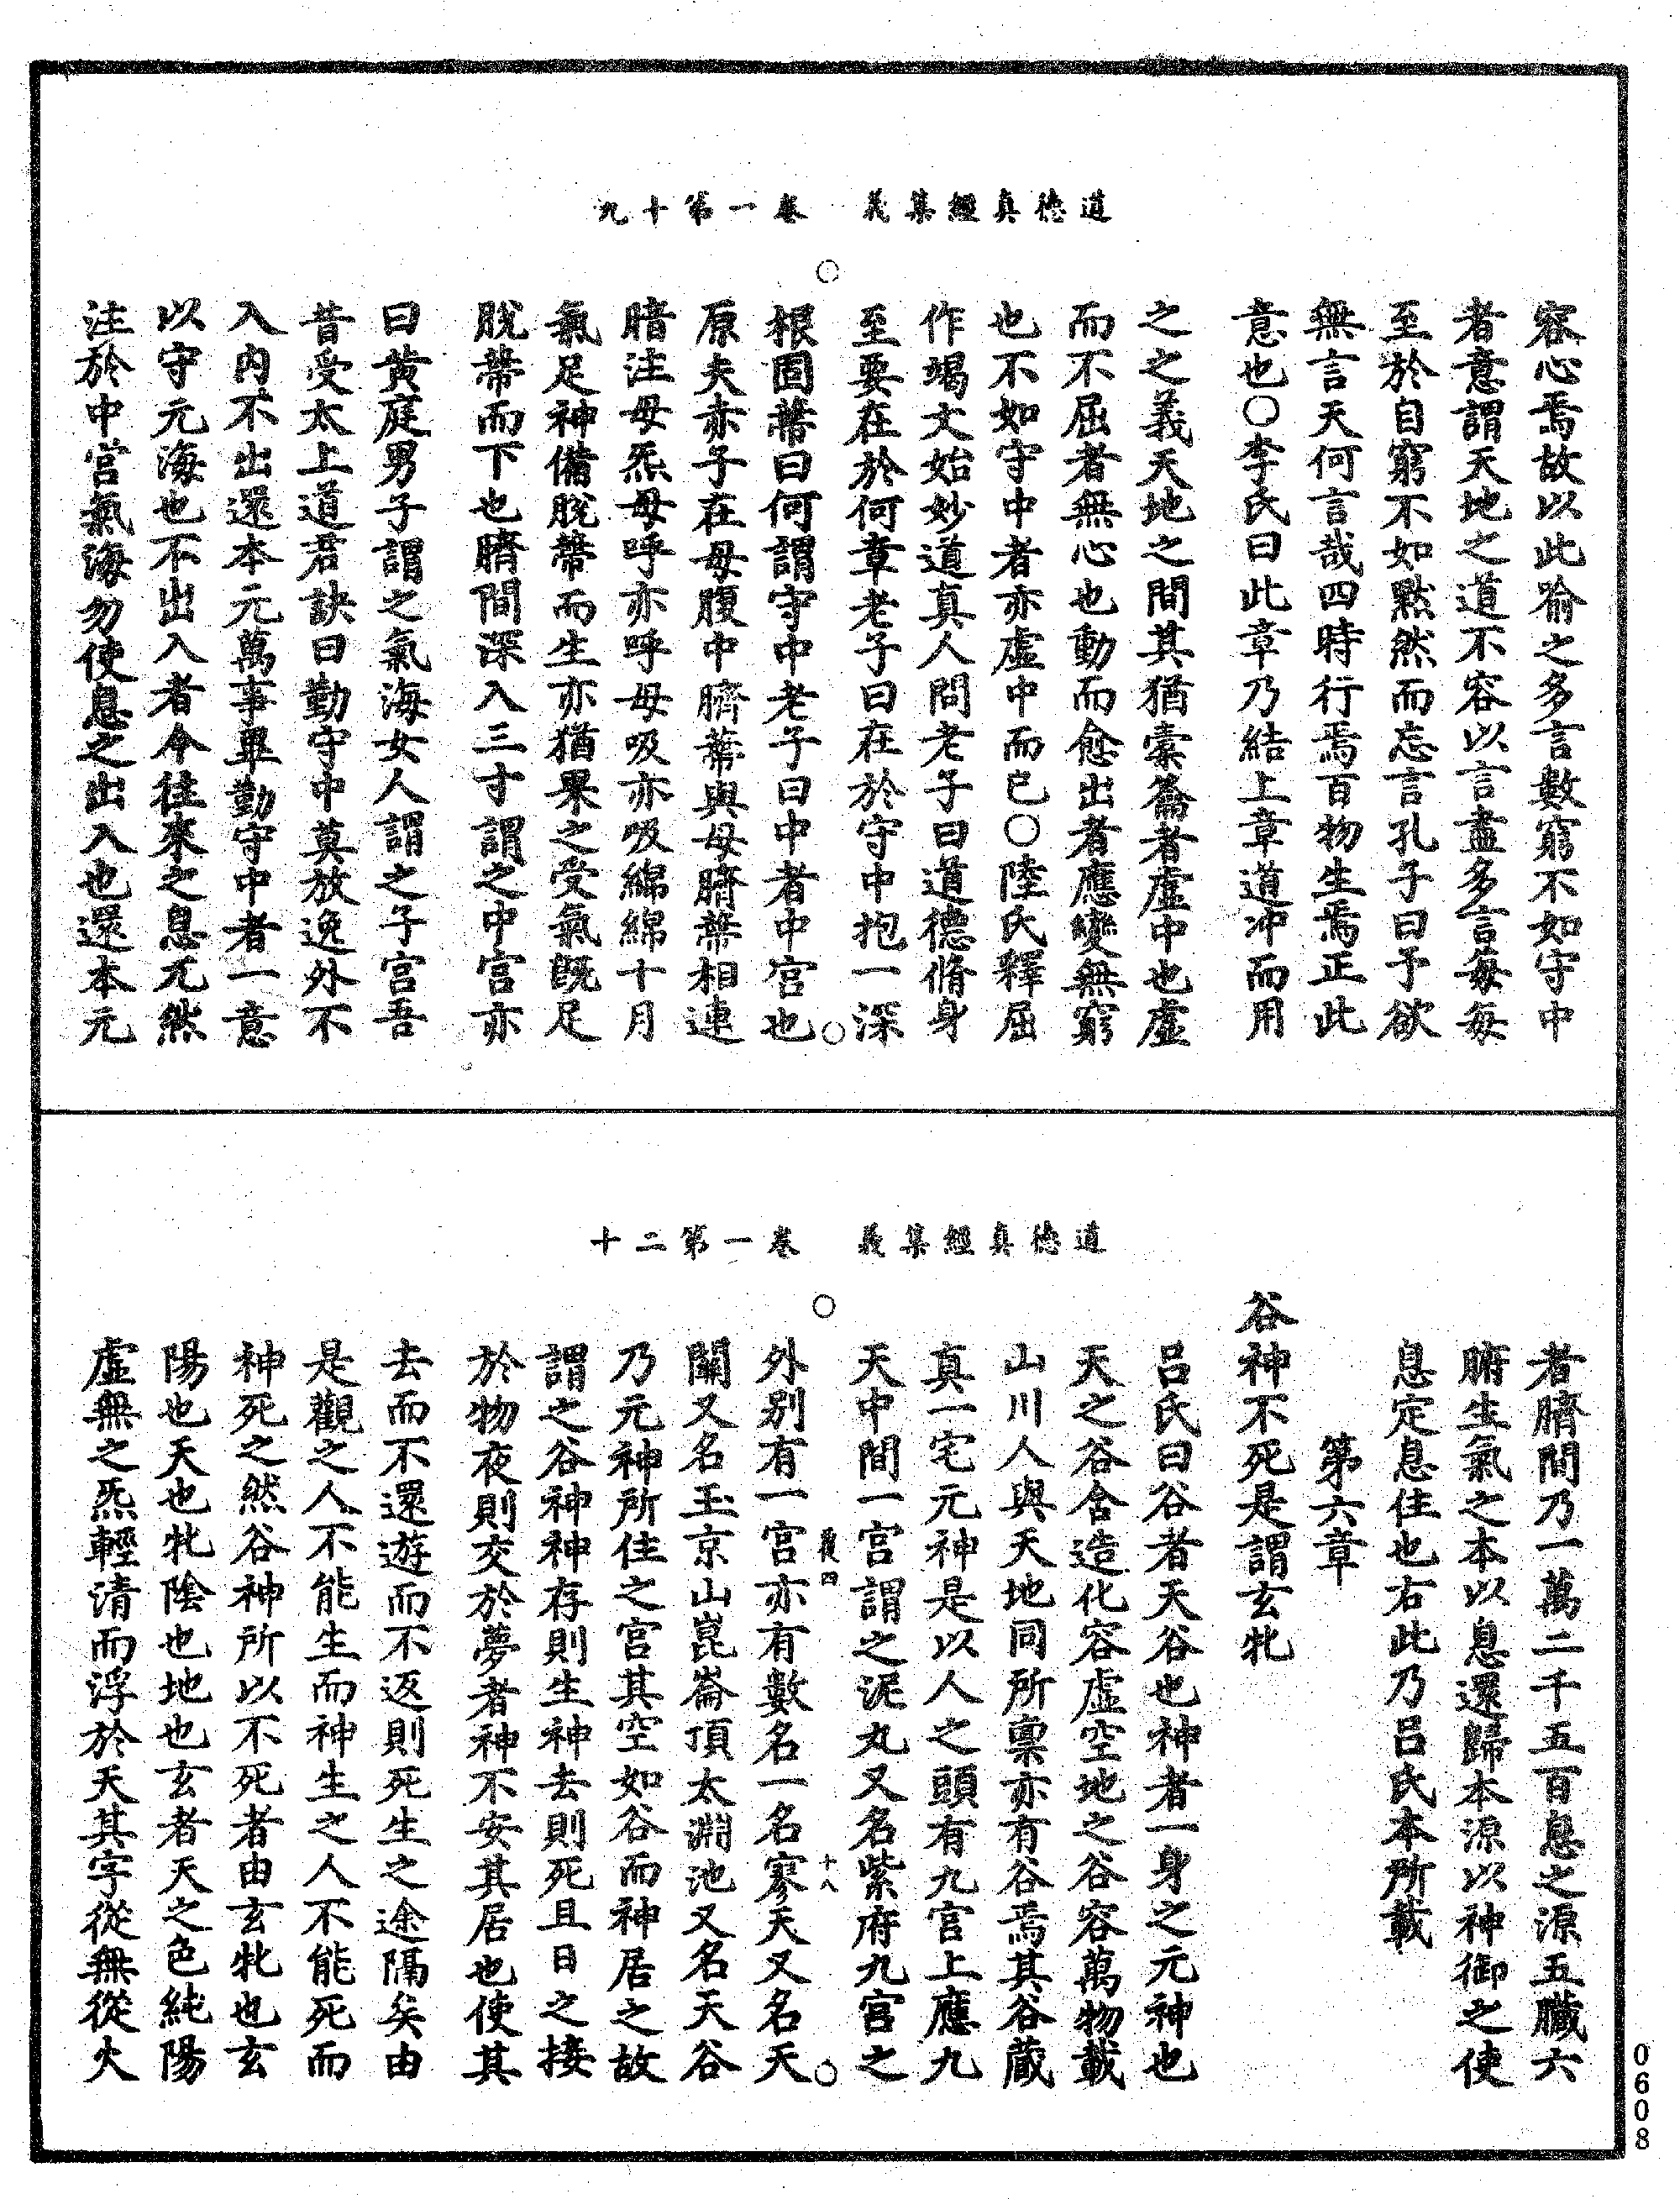 道德真經集義　卷一第十九
容心焉故以此喻之多言數窮不如守中
者意謂天地之道不容以言盡多言每每
至於自窮不如默然而忘言孔子曰予欲
無言天何言哉四時行焉百物生焉正此
意也○李氏曰此章乃結上章道冲而用
之之義天地之間其猶橐籥者虛中也虛
而不屈者無心也動而愈出者應變無窮
也不如守中者亦虛中而已○陸氏釋屈
作竭文始妙道真人問老子曰道德脩身
至要在於何章老子曰在於守中抱一深
根固蔕曰何謂守中老子曰中者中宮也
原夫赤子在母腹中臍蔕與母臍蔕相連
暗注母炁母呼亦呼母吸亦吸綿綿十月
氣足神備脫蔕而生亦猶果之受氣旣足
脫蔕而下也臍間深入三寸謂之中宮亦
曰黃庭男子謂之氣海女人謂之子宮吾
昔受太上道君訣曰勤守中莫放逸外不
入内不出還本元萬事畢勤守中者一意
以守元海也不出入者令往來之息兀然
注於中宮氣海勿使息之出入也還本元
道德真經集義　卷一第二十
者臍間乃一萬二千五百息之源五臟六
腑生氣之本以息還歸本源以神御之使
息定息住也右此乃呂氏本所載
第六章
谷神不死是謂玄牝
呂氏曰谷者天谷也神者一身之元神也
天之谷含造化容虛空地之谷容萬物載
山川人與天地同所禀亦有谷焉其谷藏
真一宅元神是以人之頭有九宮上應九
天中間一宮謂之泥丸又名紫府九宮之
四
十八
外別有一宮亦有數名一名寥天又名天
關又名玉京山崑崙頂太淵池又名天谷
乃元神所住之宮其空如谷而神居之故
謂之谷神神存則生神去則死且日之接
於物夜則交於夢者神不安其居也使其
去而不還遊而不返則死生之途隔矣由
是觀之人不能生而神生之人不能死而
神死之然谷神所以不死者由玄牝也玄
陽也天也牝陰也地也玄者天之色純陽
虛無之炁輕清而浮於天其字從無從火
0608